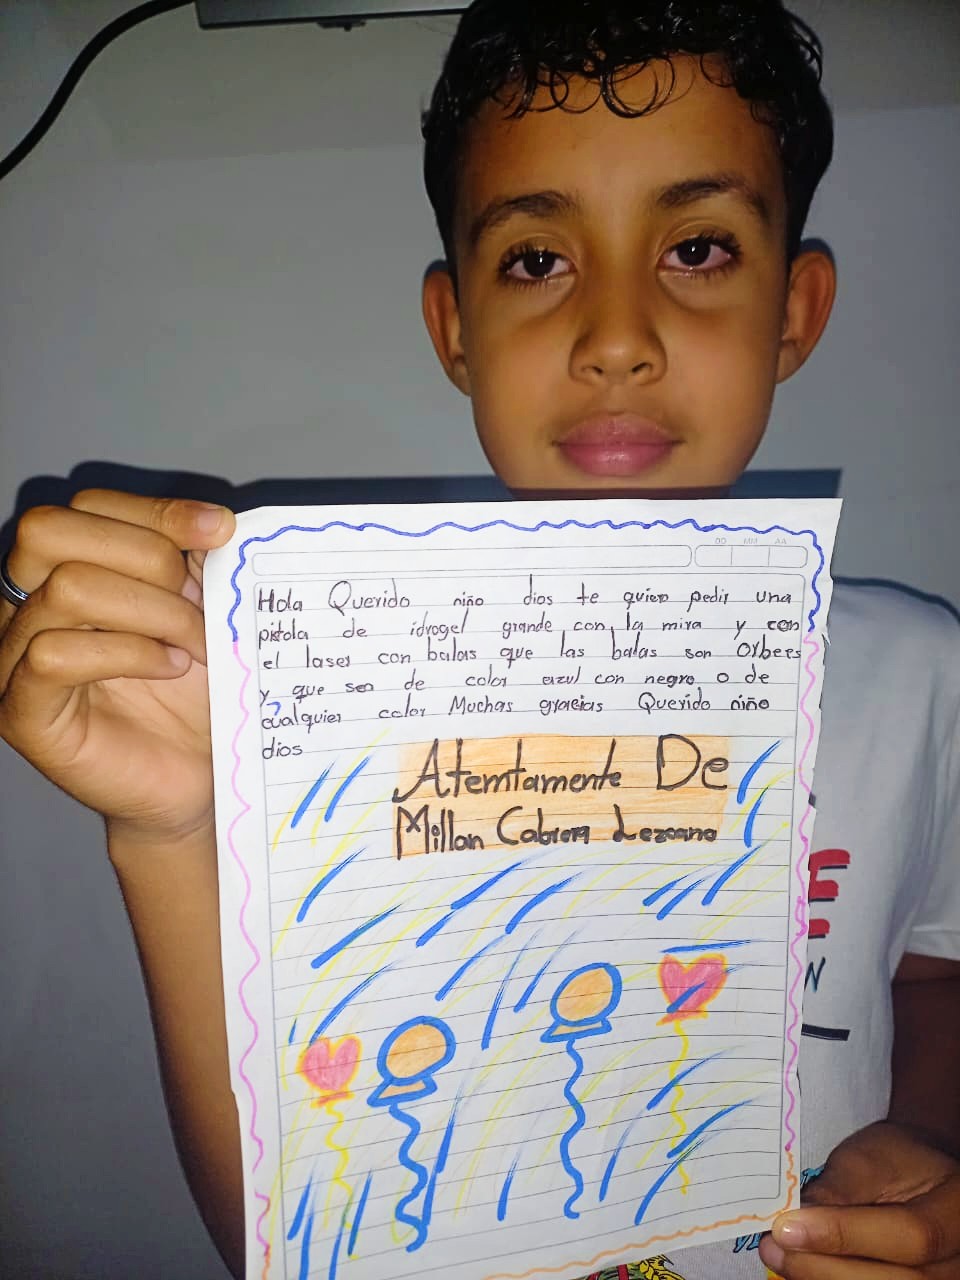 DD MM AA
Hola Querido niño dios te quiero pedir una
pistola de idrogel grande con la mira y con
el laser con balas que las balas son Orbees
y que sea de color azul con negro o de
cualquier color Muchas gracias Querido niño
dios
Atemtamente De
Millan Cabrera Lezcano